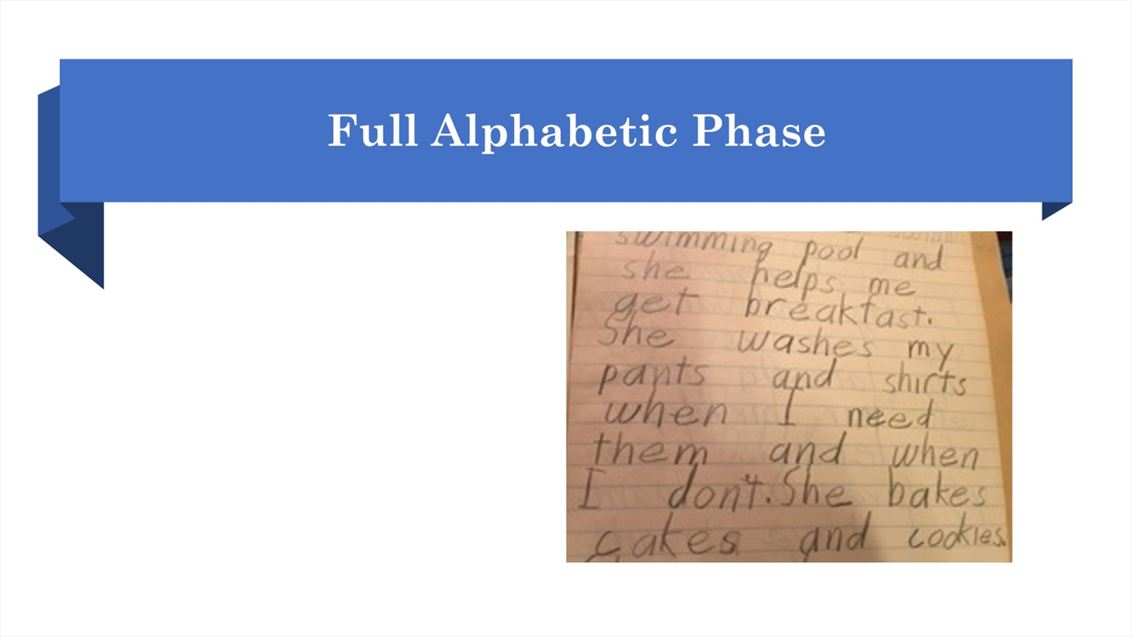 Full Alphabetic Phase
swimming pool and
she helps me
get breakfast.
She washes my
pants and shirts
when I need
them and when
I don't. She bakes
cakes and cookies.